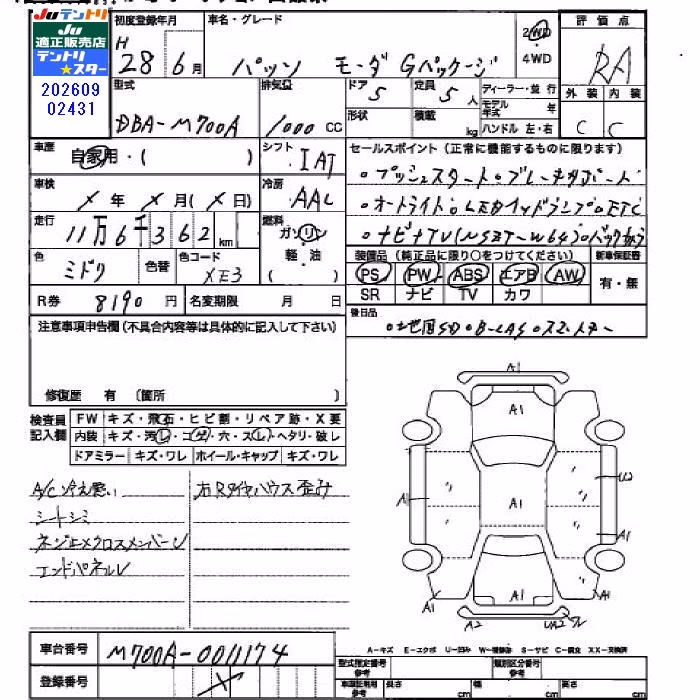 Juテントリ
Ju
適正販売店
テントリ
★スター
202609
02431
初度登録年月
H
28 6 月
車名・グレード
パッソ モーダ Gパッケージ
2WD
4WD
評価点
RA
外装 内装
C C
型式
DBA-M700A
排気量
1000 CC
ドア
5
定員
5 人
形状
積載
kg
ディーラー・並行
モデル年式 年
ハンドル 左・右
車歴
自家用・( )
シフト
IAT
セールスポイント(正常に機能するものに限ります)
プッシュスタート
オートライト・LEDヘッドランプ・ETC
ナビ+TV(NSZT-W64)・バックカメラ
車検
X 年 X 月(X 日)
冷房
AAC
走行
11万6千362 km
燃料
ガソリン
軽・油
( )
色
ミドリ
色替
色コード
XE3
装備品(純正品に限り○をつけてください)
PS PW ABS エアB AW
SR ナビ TV カワ
新車保証書
有・無
R券 8190 円
名変期限 月 日
後日品
地図SD
注意事項申告欄(不具合内容等は具体的に記入して下さい)
修復歴 有 (箇所 )
検査員
記入欄
FW キズ・飛石・ヒビ割・リペア跡・X要
内装 キズ・汚レ・コゲ・穴・スレ・ヘタリ・破レ
ドアミラー キズ・ワレ ホイール・キャップ キズ・ワレ
A/C冷え悪い
シートシミ
クロスメンバーU
エンドパネルU
右Rタイヤハウス歪み
A1
A1
A1
U2
A1
A1
A1
A1
A1
A2
UA2
車台番号
M700A-0011174
登録番号
X
A-キズ E-エクボ U-凹み W-補修跡 S-サビ C-腐食 XX-交換済
型式指定番号
参考
類別区分番号
参考
長さ cm
幅 cm
高さ cm